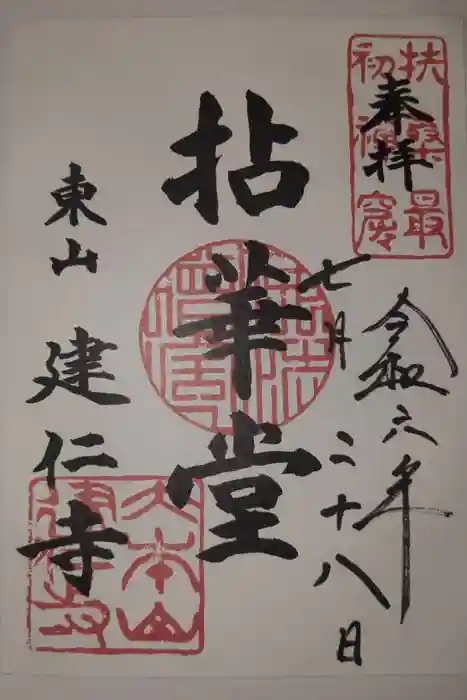 奉拝
扶桑最
初禅窟
令和六年
七月二十八日
拈華堂
東山
建仁寺
大本山
建仁寺